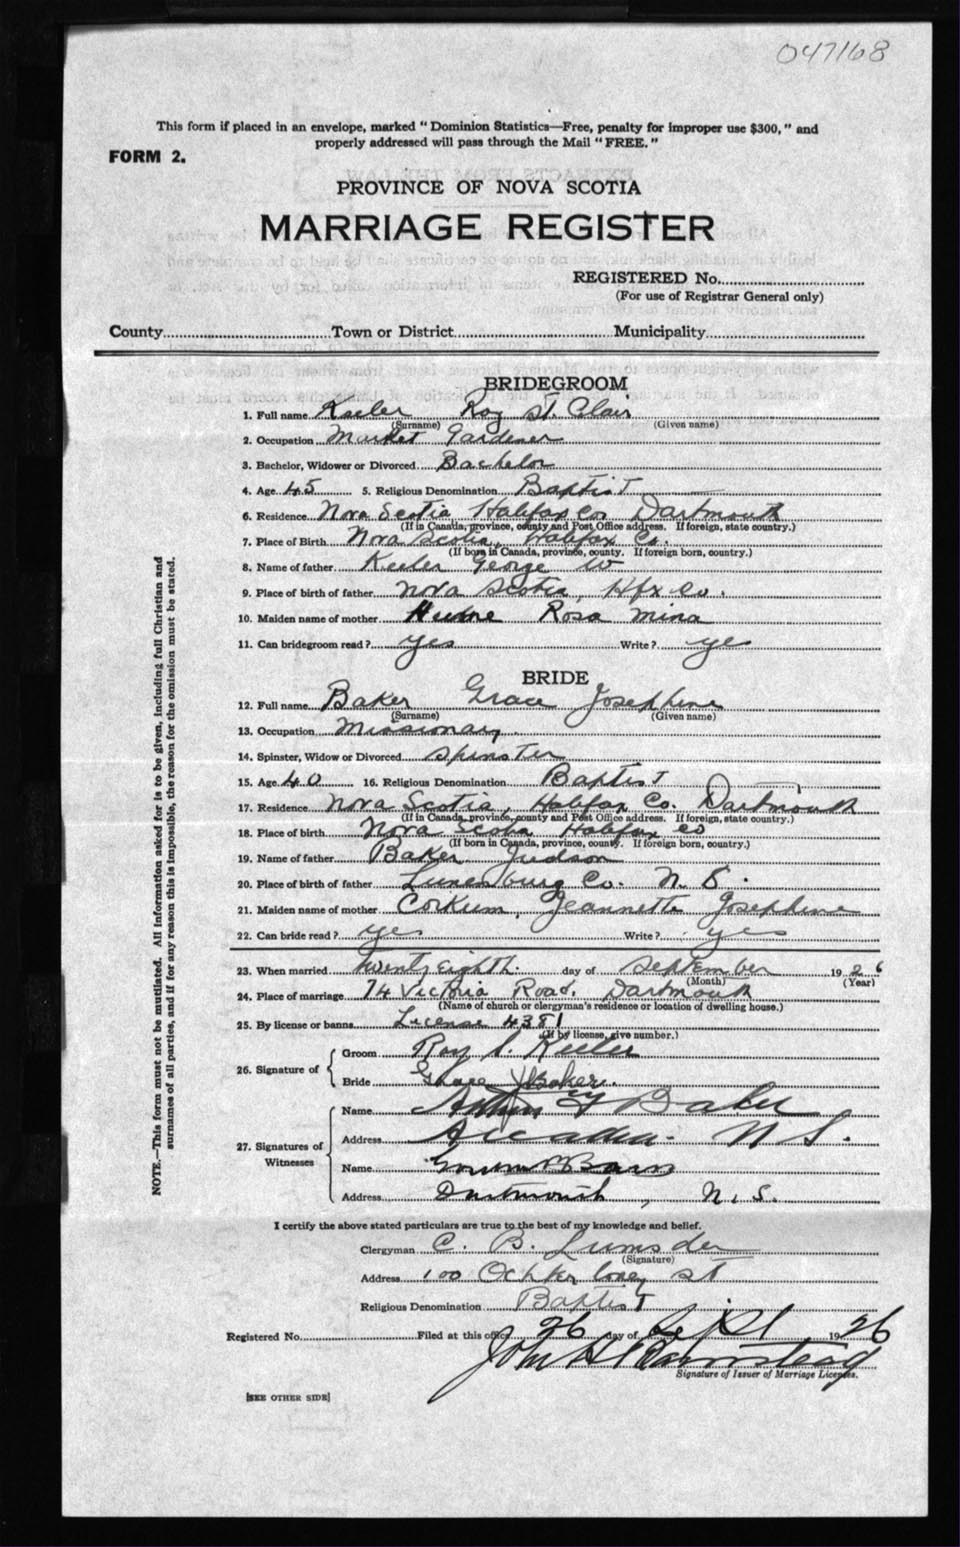 047168
This form if placed in an envelope, marked "Dominion Statistics—Free, penalty for improper use $300," and
properly addressed will pass through the Mail "FREE."
FORM 2.
PROVINCE OF NOVA SCOTIA
MARRIAGE REGISTER
REGISTERED No.
(For use of Registrar General only)
County Town or District Municipality
BRIDEGROOM
1. Full name Keeler Roy St. Clair
(Surname) (Given name)
2. Occupation Market Gardener
3. Bachelor, Widower or Divorced Bachelor
4. Age 45 5. Religious Denomination Baptist
6. Residence Nova Scotia Halifax Co. Dartmouth
(If in Canada, province, county and Post Office address. If foreign, state country.)
7. Place of Birth Nova Scotia, Halifax Co.
(If born in Canada, province, county. If foreign born, country.)
8. Name of father Keeler George W
9. Place of birth of father Nova Scotia, Hfx Co.
10. Maiden name of mother Rosa Mina
11. Can bridegroom read? yes Write? yes
BRIDE
12. Full name Baker Grace Josephine
(Surname) (Given name)
13. Occupation Missionary.
14. Spinster, Widow or Divorced Spinster
15. Age 40 16. Religious Denomination Baptist
17. Residence Nova Scotia, Halifax Co. Dartmouth
(If in Canada, province, county and Post Office address. If foreign, state country.)
18. Place of birth Nova Scotia Halifax Co
(If born in Canada, province, county. If foreign born, country.)
19. Name of father Baker Judson
20. Place of birth of father Lunenburg Co. N. S.
21. Maiden name of mother Corkum, Jeannette Josephine
22. Can bride read? yes Write? yes
23. When married twenty eighth day of September 1926
(Month) (Year)
24. Place of marriage 74 Victoria Road, Dartmouth
(Name of church or clergyman's residence or location of dwelling house.)
25. By license or banns License 4381
(If by license, give number.)
26. Signature of Groom Roy S. Keeler
Bride Grace J Baker.
27. Signatures of Witnesses Name Baker
Address Arcadia N S.
Name
Address Dartmouth, N. S.
I certify the above stated particulars are true to the best of my knowledge and belief.
Clergyman C. B. Lumsden
(Signature)
Address 100 St
Religious Denomination Baptist
Registered No. Filed at this office 26 day of Sept 1926
John H Barnstead
Signature of Issuer of Marriage Licenses.
[SEE OTHER SIDE]
NOTE.—This form must not be mutilated. All information asked for is to be given, including full Christian and
surnames of all parties, and if for any reason this is impossible, the reason for the omission must be stated.